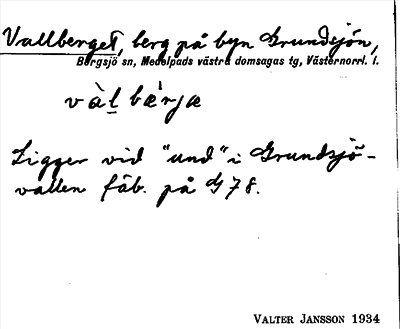 Vallberget, berg på byn Grundsjön,
Bergsjö sn, Medelpads västra domsagas tg, Västernorrl. l.
vàl bærjæ
Ligger vid "und" i Grundsjö-
vallen fäb. på G78.
VALTER JANSSON 1934